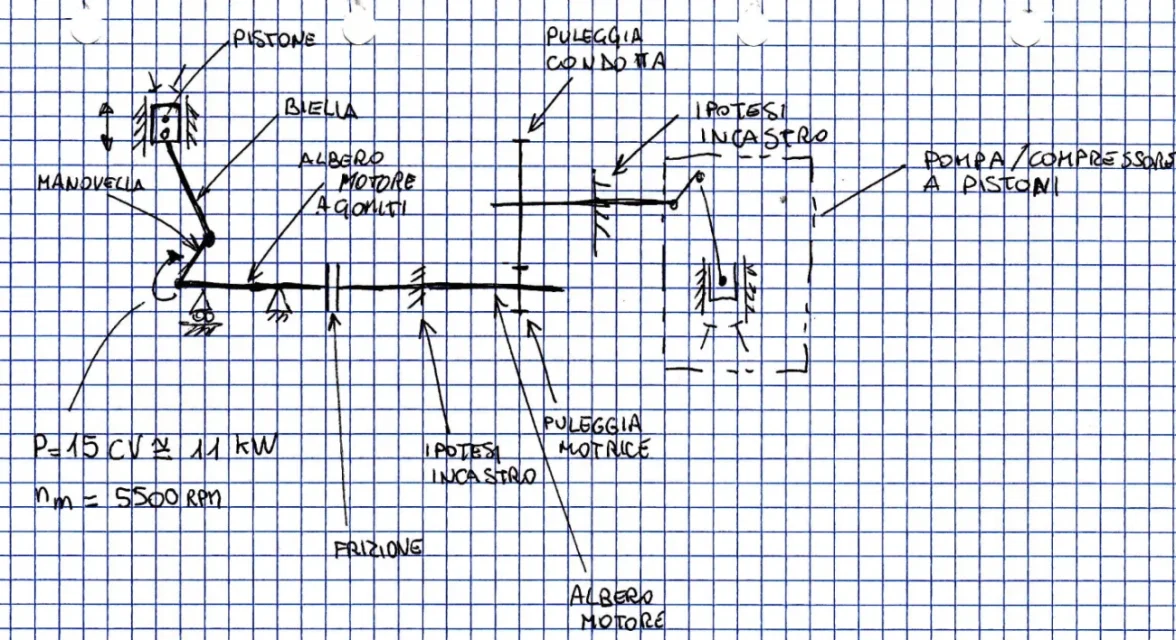 PISTONE
PULEGGIA
CONDOTTA
BIELLA
IPOTESI
INCASTRO
ALBERO
MOTORE
A GOMITI
POMPA/COMPRESSORE
A PISTONI
MANOVELLA
P=15 CV ≅ 11 KW
nm = 5500 RPM
IPOTESI
INCASTRO
PULEGGIA
MOTRICE
FRIZIONE
ALBERO
MOTORE